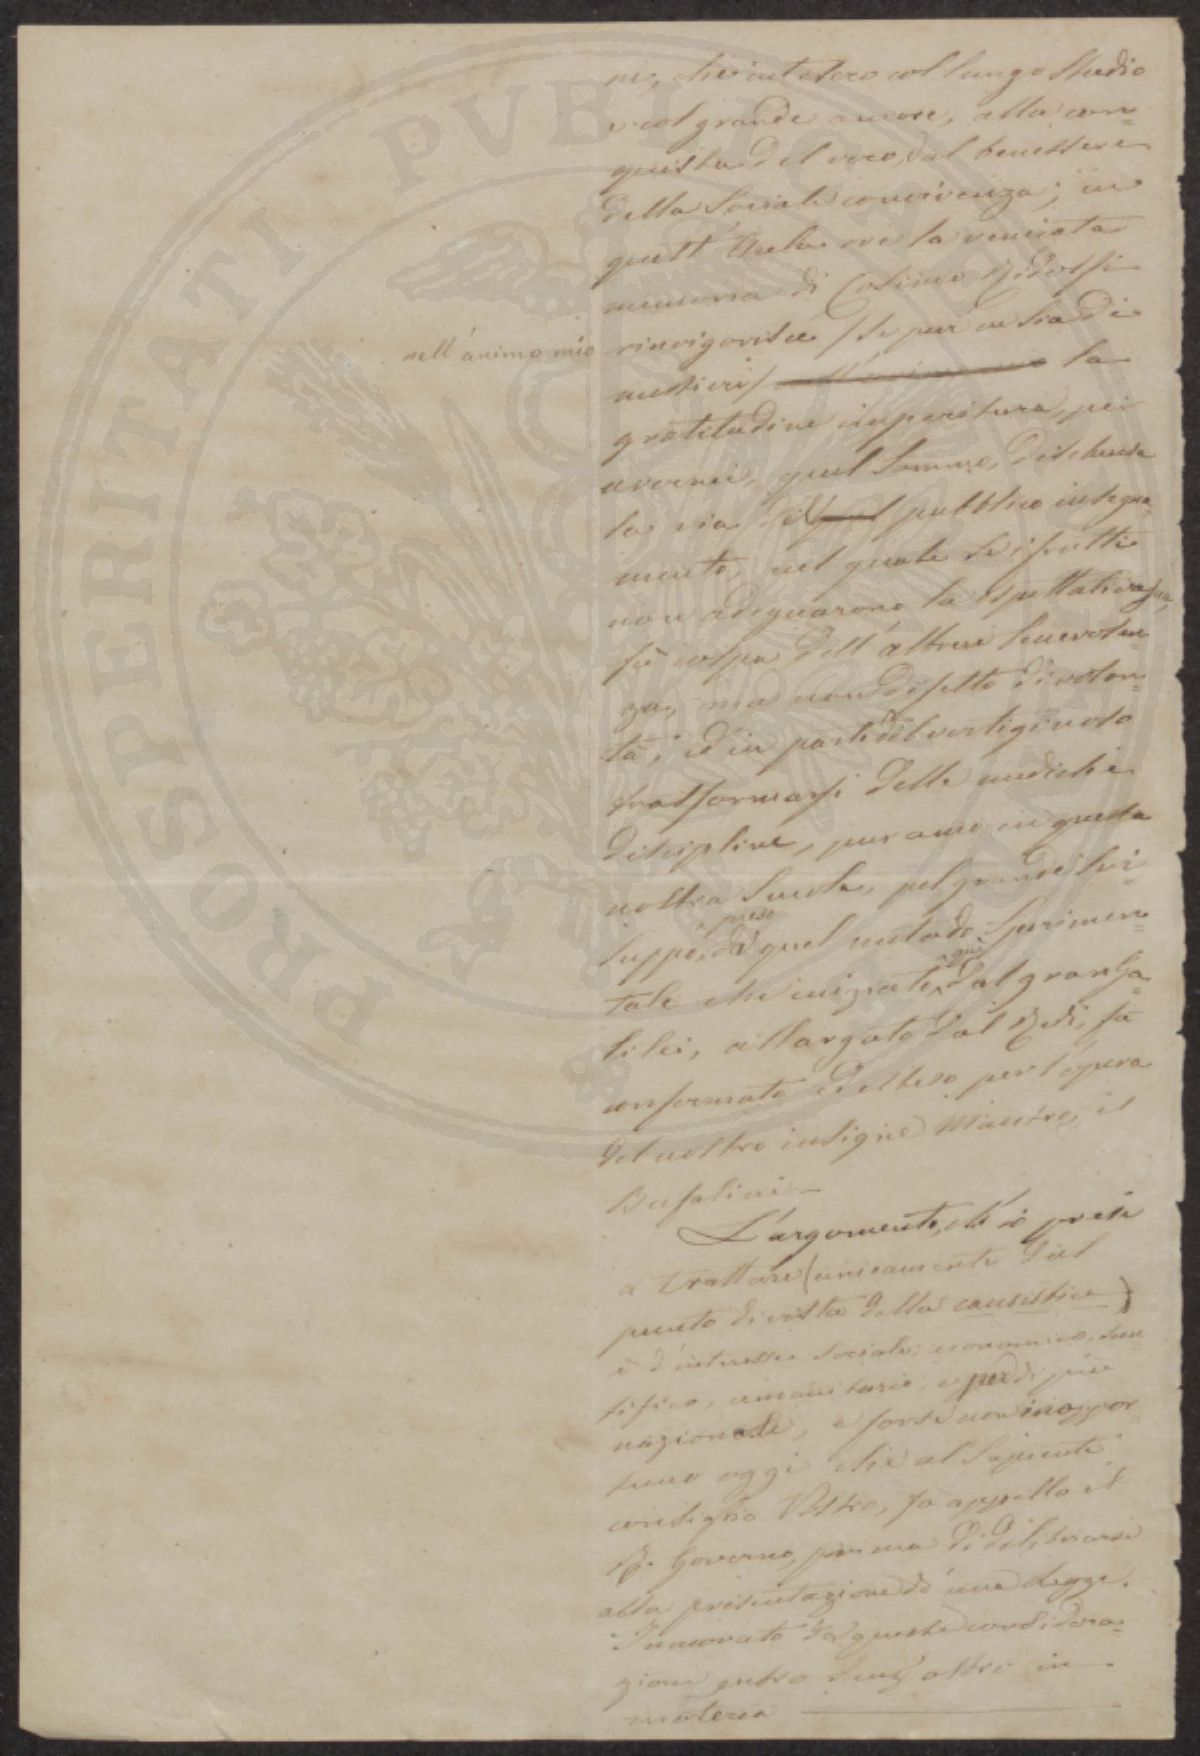 PROSPERITATI PUBLICAE
ni, che intesero col lungo studio
e col grande amore, alla con=
quista del vero, dal benessere
della Sociale convivenza; in
quest'Aula ove la venerata
memoria di Cosimo Ridolfi
nell'animo mio
rinvigorisce (se pur ve n'ha di
mestieri) nell'animo mio la
gratitudine imperitura, per
avermi, quel Sommo, dischiusa
la via del pubblico insegna=
mento, nel quale se i frutti
non adeguarono la aspettativa sua,
fu colpa dell'altrui benevolen=
za, ma non difetto di volon=
tà; ed in parte del vertiginoso
trasformarsi delle mediche
discipline, pur anco in questa
nostra Scuola, pel grande svi=
luppo, preso da quel metodo Sperimen=
tale che iniziato, qui dal gran Ga=
lilei, allargato dal Redi, fu
confermato ed esteso per l'opera
del nostro insigne Maestro, il
Bufalini -
L'argomento, ch'io presi
a trattare (unicamente dal
punto di vista della causistica)
è d'interesse sociale, economico, scien=
tifico, umanitario; e per di più
nazionale, e forse non inoppor
tuno oggi che al Sapiente
consiglio Vostro, fa appello il
R. Governo, prima di deliberarsi
alla presentazione di una Legge.
Incuorato da queste considera=
zioni entro senz'altro in
materia